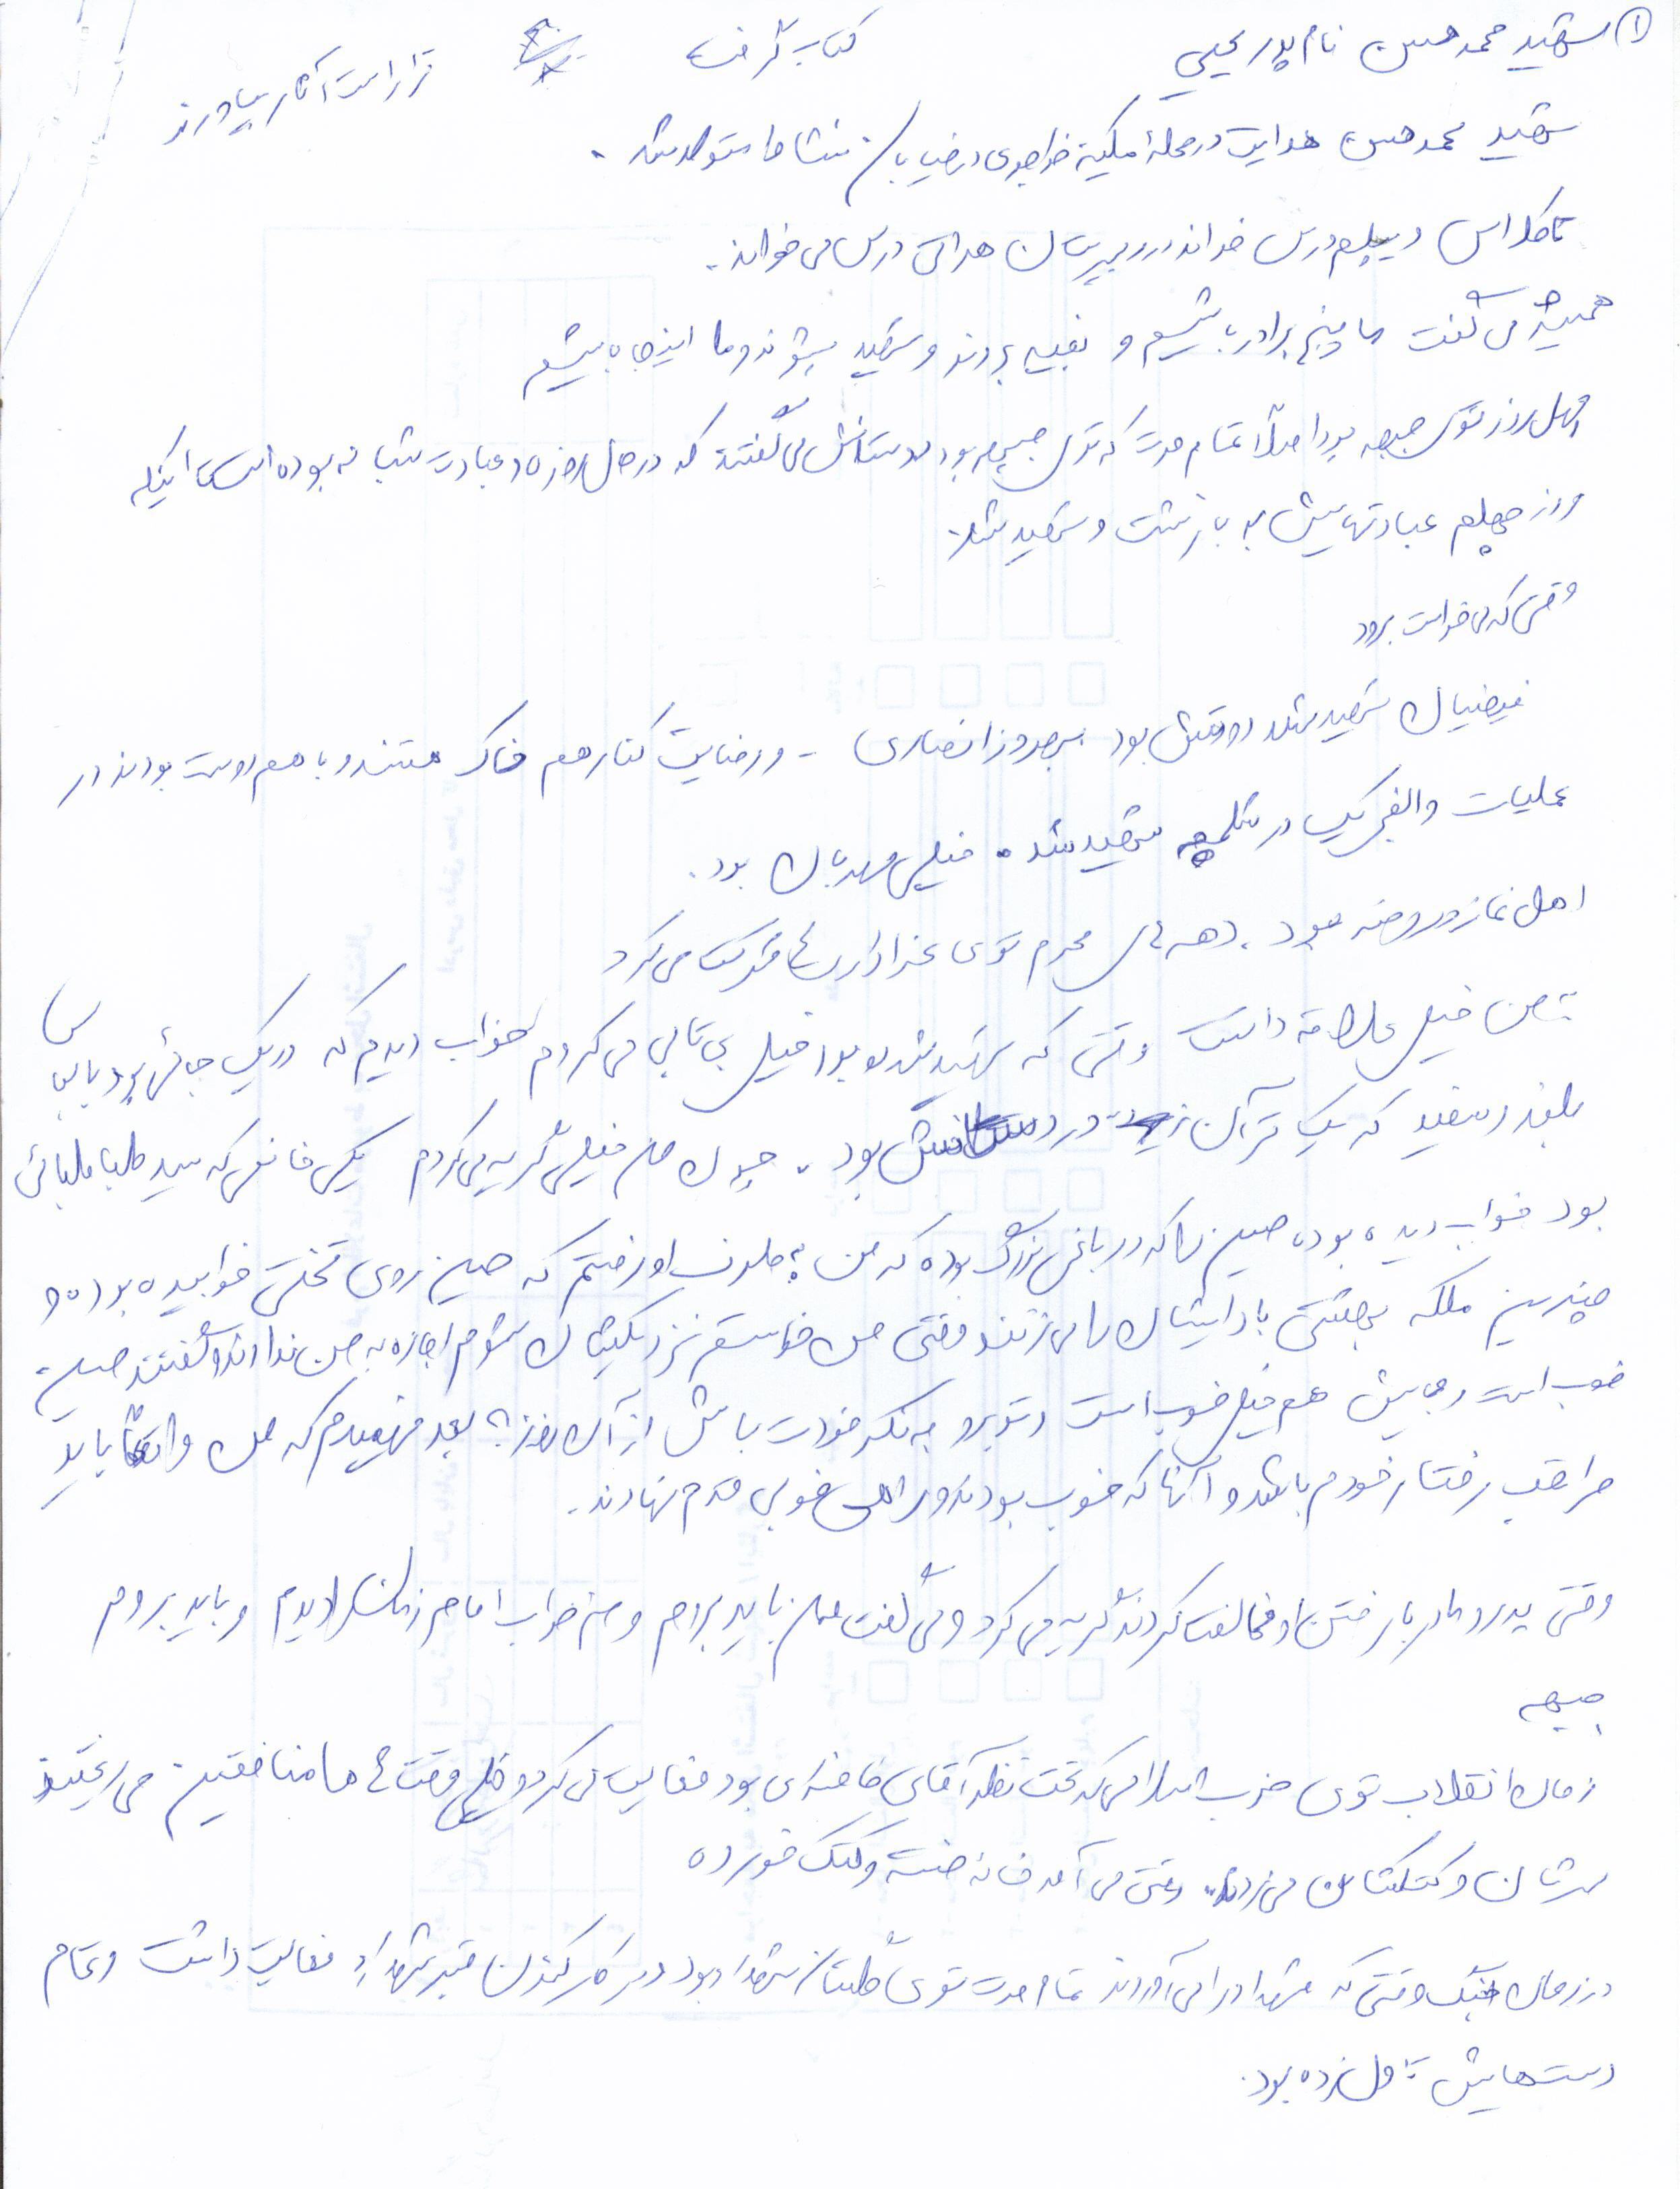 ۱ شهید محمد حسین نام پدر یحیی
کتاب گرفت
قرار است آثار بیاورند
شهید محمد حسین هدایت در محله ملکیه خواجوی در خیابان منشا متولد شد.
تا کلاس دیپلم درس خواند در دبیرستان هراتی درس می خواند.
همیشه می گفت ما پنج برادر باشیم و بقیه بروند و شهید بشوند و ما اینجا باشیم
چهل روز توی جبهه بود اصلاً تمام مدت که توی جبهه بود دوستانش می گفتند که در حال روزه و عبادت شبانه بوده است تا اینکه
روز چهلم عبادتهایش به بار نشست و شهید شد.
وقتی که می خواست برود
فیضیان شهید شد دوستش بود بهروز انصاری - و رضایت کنار هم خاک هستند و با هم دوست بودند در
عملیات والفجر یک در شلمچه شهید شد. خیلی مهربان بود.
اهل نماز و روضه بود، دهه های محرم توی عزاداریها شرکت می کرد
به من خیلی علاقه داشت وقتی که شهید شده بود خیلی بی تابی می کردم خواب دیدم که در یک جائی بود با لباس
بلند و سفید که یک قرآن در دستانش بود. چون من خیلی گریه می کردم یکی خانمی که سید طباطبائی
بود خواب دیده بود، حسین را که در باغی بزرگ بوده که من به طرف او رفتم که حسین روی تختی خوابیده بوده و
چندین ملکه بهشتی باد ایشان را می زنند وقتی من خواستم نزدیکشان شوم اجازه به من ندادند و گفتند حسین
خوب است و جایش هم خیلی خوب است و تو برو به فکر خودت باش از آن روز به بعد فهمیدم که من واقعاً باید
مراقب رفتار خودم باشم و آنها که خوب بودند در راهی خوبی قدم نهادند.
وقتی پدر و مادر با رفتن او مخالفت کردند گریه می کرد و می گفت من باید بروم و من خواب امام زمان را دیدم و باید بروم
جبهه
زمان انقلاب توی حزب اسلامی که تحت نظر آقای خامنه ای بود فعالیت می کرد و خیلی وقت ها منافقین می ریختند
سرشان و کتکشان می زدند. وقتی می آمد خانه خسته و کتک خورده
در زمان جنگ وقتی که شهدا را می آوردند تمام مدت توی گلستان شهدا بود و در کار کندن قبر شهدا فعالیت داشت و تمام
دست هایش تاول زده بود.